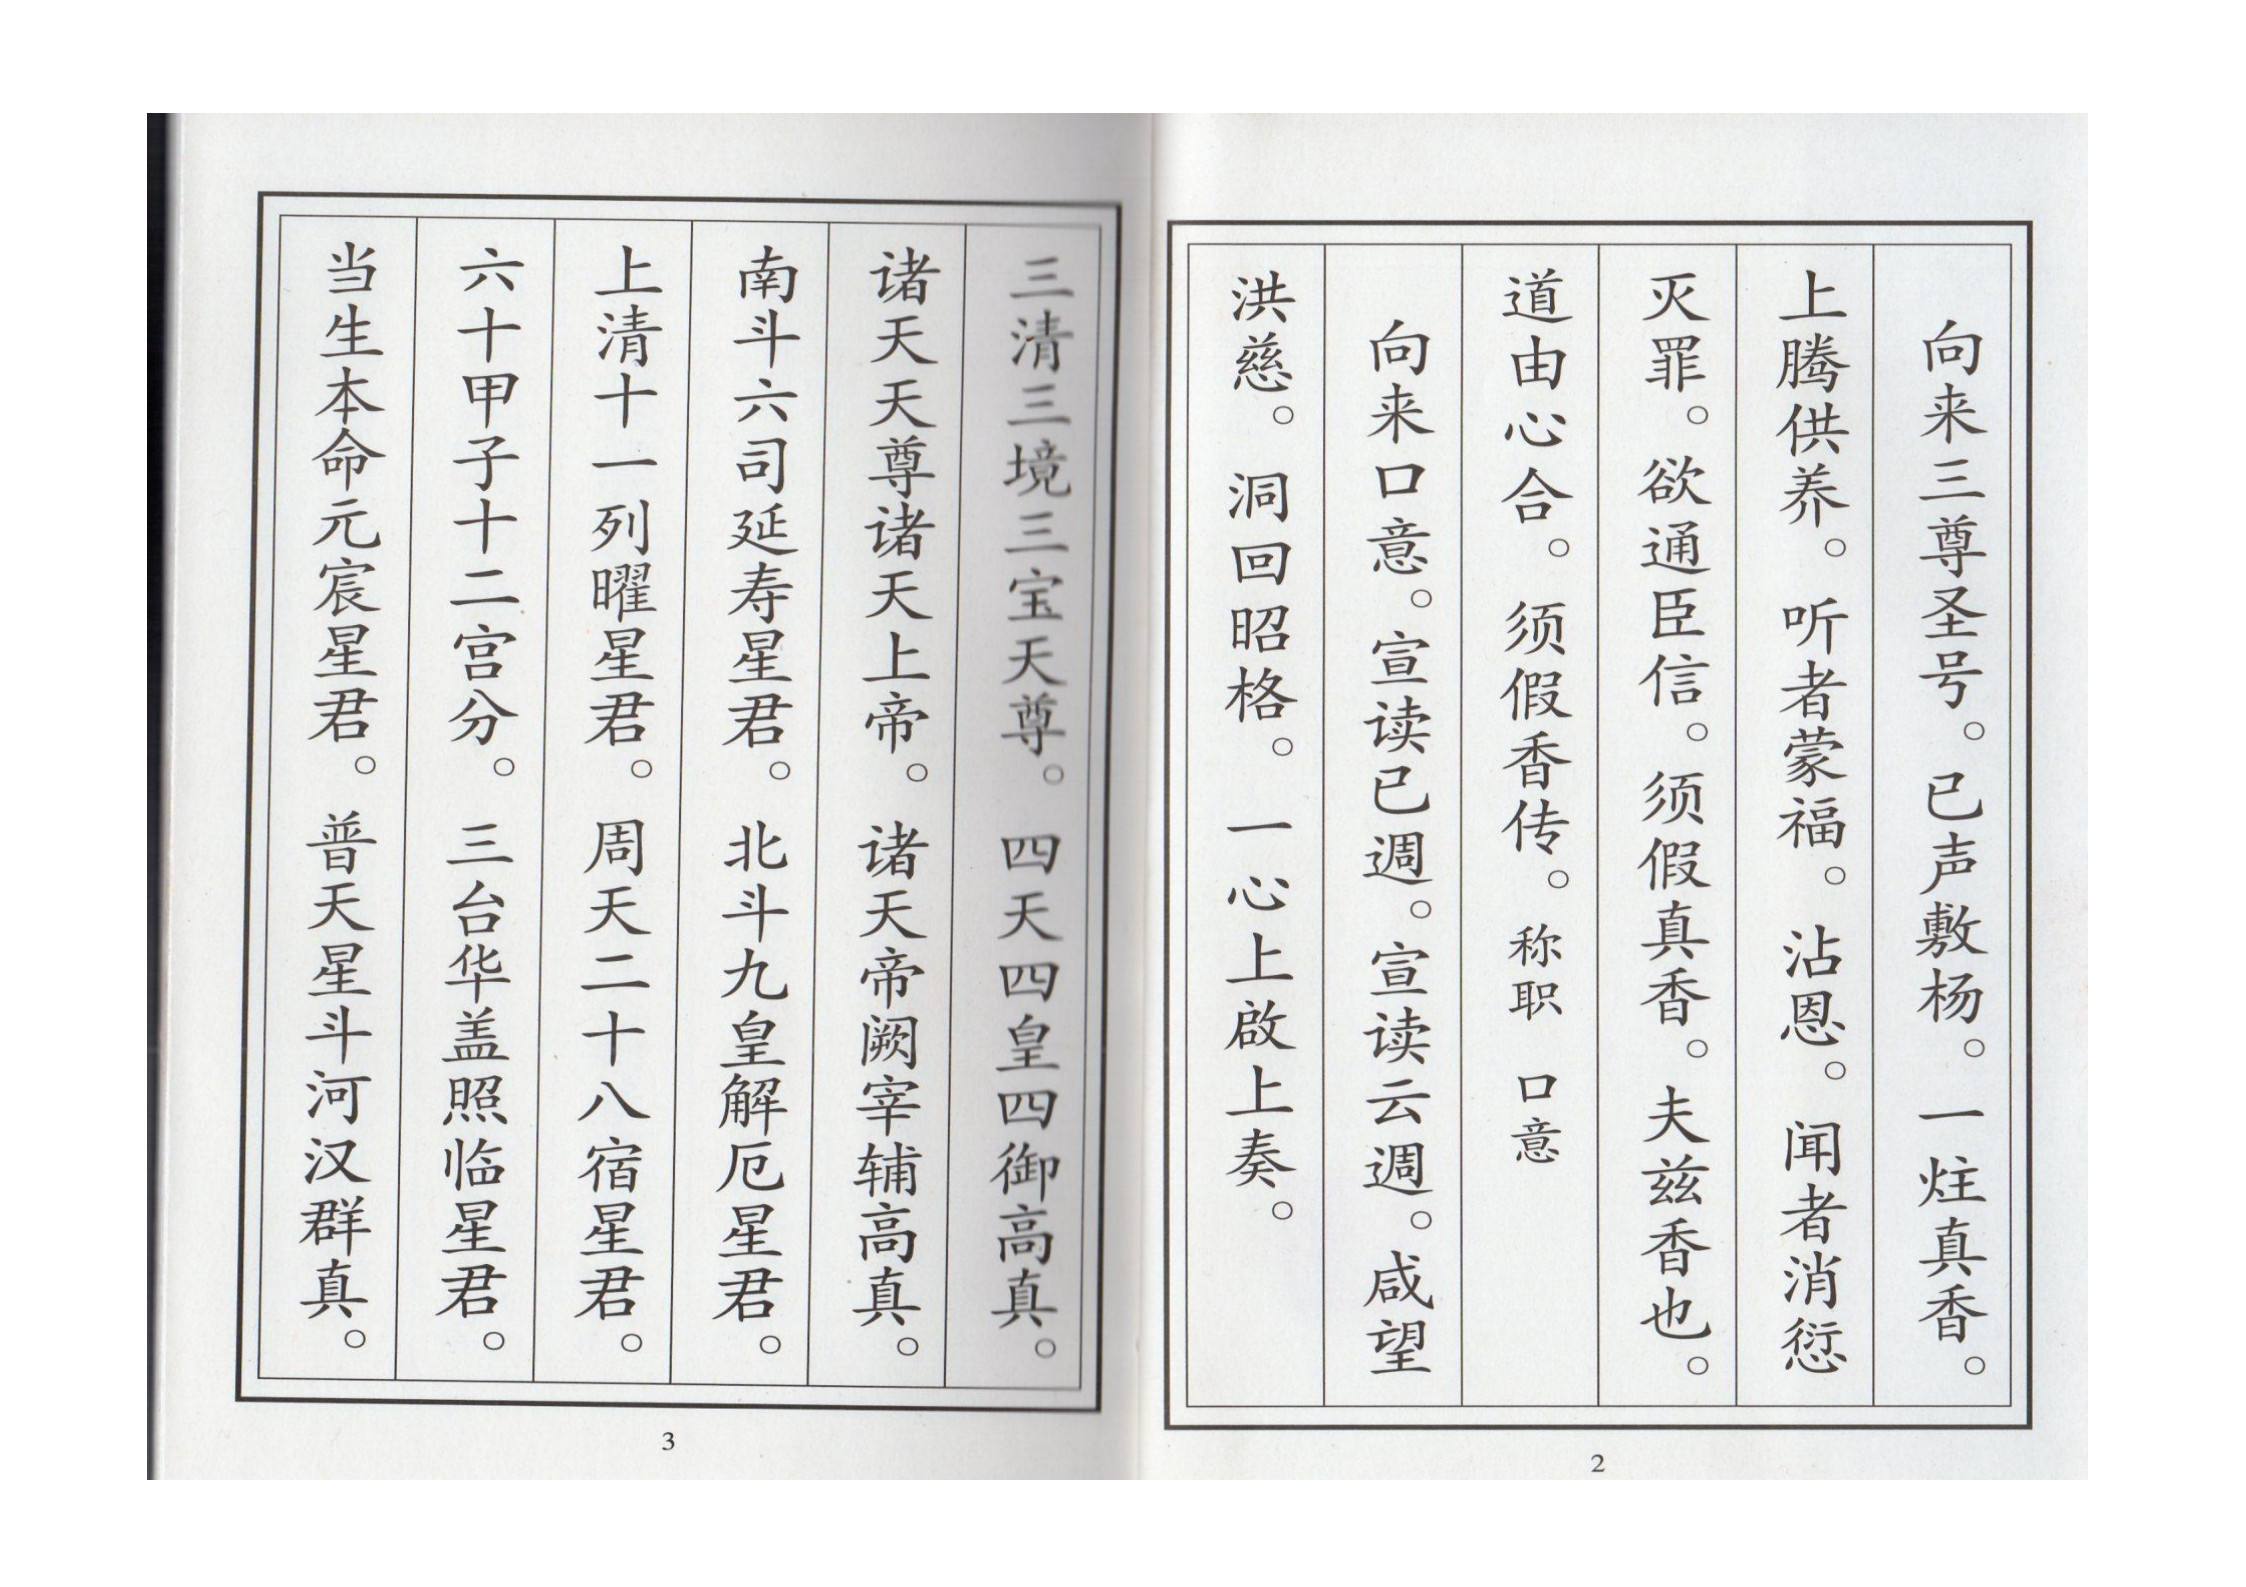 向来三尊圣号。已声敷杨。一炷真香。
上腾供养。听者蒙福。沾恩。闻者消愆
灭罪。欲通臣信。须假真香。夫兹香也。
道由心合。须假香传。称职 口意
向来口意。宣读已週。宣读云週。咸望
洪慈。洞回昭格。一心上啟上奏。
2
三清三境三宝天尊。四天四皇四御高真。
诸天天尊诸天上帝。诸天帝阙宰辅高真。
南斗六司延寿星君。北斗九皇解厄星君。
上清十一列曜星君。周天二十八宿星君。
六十甲子十二宫分。三台华盖照临星君。
当生本命元宸星君。普天星斗河汉群真。
3